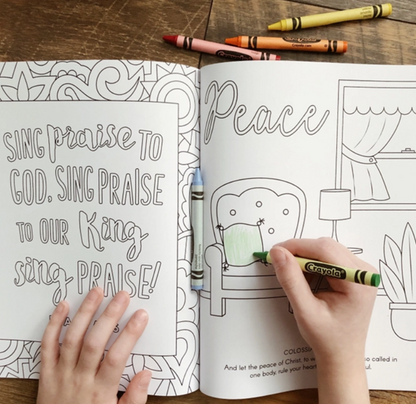 SING praise TO
GOD, SING PRAISE
TO OUR King
sing PRAISE!
Peace
Crayola
COLOSS
And let the peace of Christ, to called in
one body, rule your hear